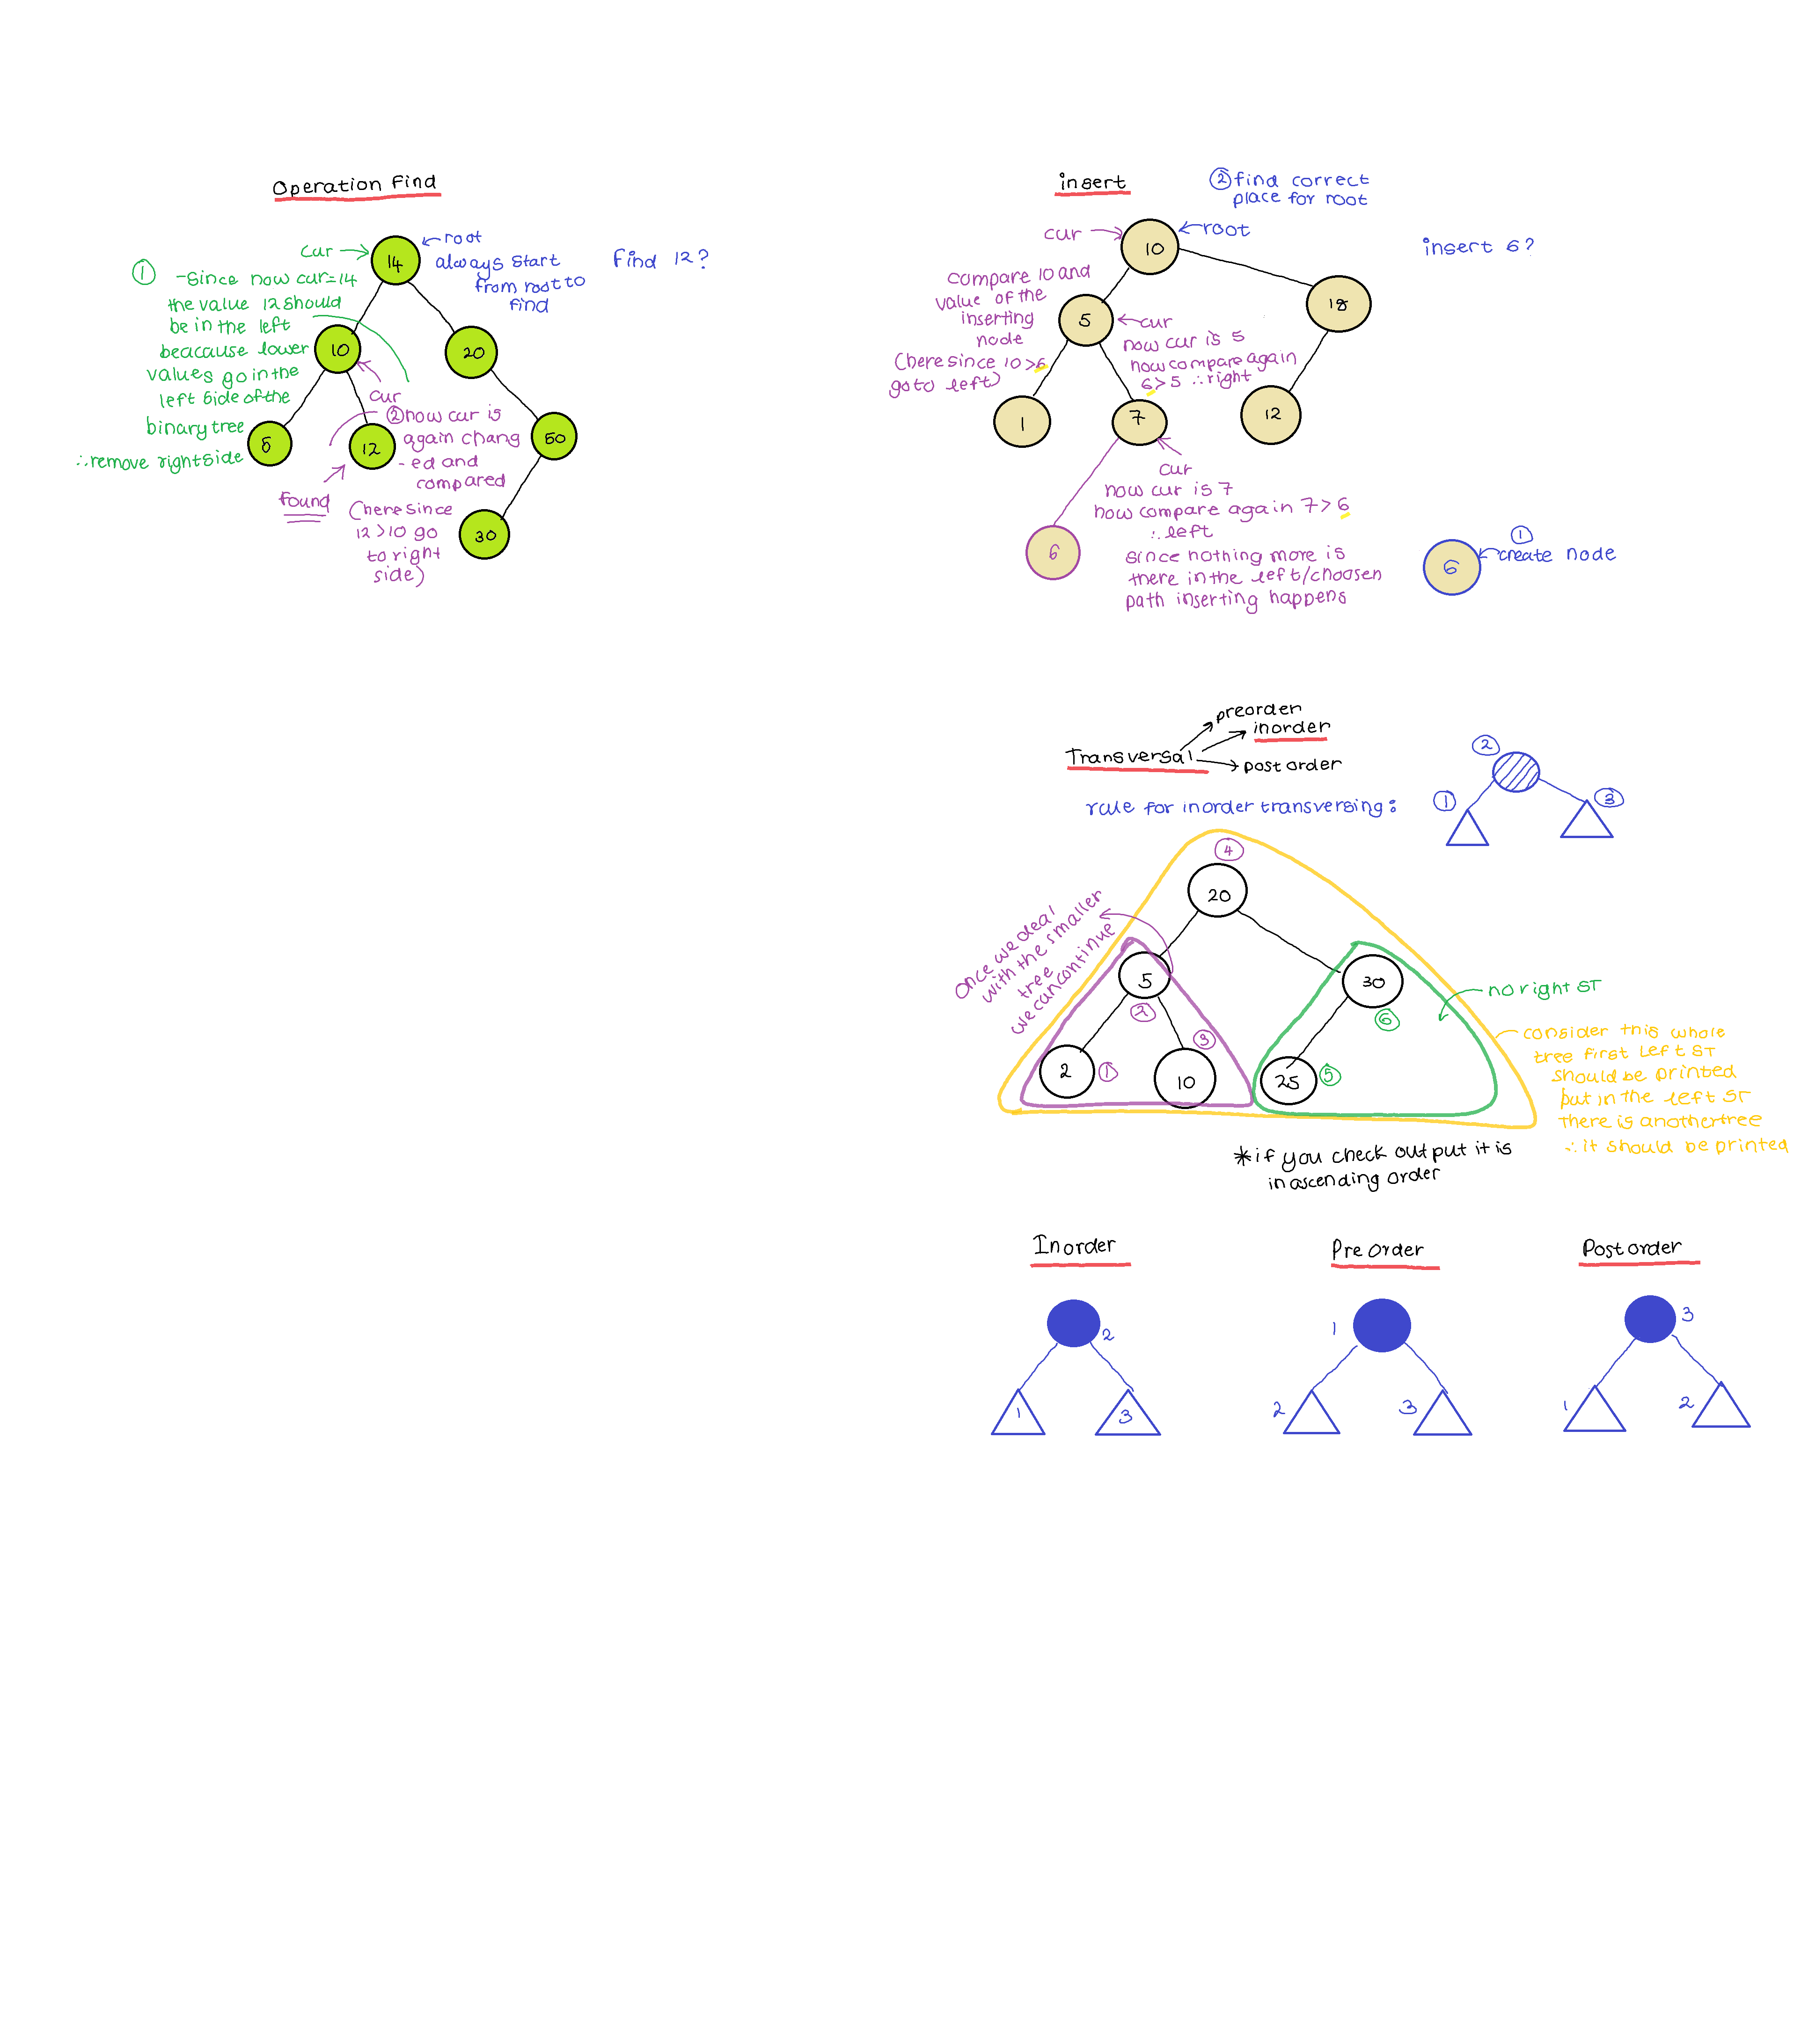 Operation Find
cur
root
always start
from root to
find
Find 12?
①
-Since now cur=14
the value 12 should
be in the left
beacause lower
values go in the
left side of the
binary tree
∴remove right side
14
10
20
cur
②now cur is
again chang
-ed and
compared
5
12
50
found
(here since
12>10 go
to right
side)
30
insert
②find correct
place for root
cur
10
root
insert 6?
compare 10 and
value of the
inserting
node
(here since 10>6
go to left)
5
18
cur
now cur is 5
now compare again
6>5 ∴right
1
7
12
cur
now cur is 7
now compare again 7>6
∴left
since nothing more is
there in the left/choosen
path inserting happens
6
①
create node
6
Transversal
preorder
inorder
postorder
rule for inorder transversing:
②
①
③
④
20
Once we deal
with the smaller
tree
we can continue
5
②
30
⑥
no right ST
2
①
③
10
25
⑤
consider this whole
tree first left ST
should be printed
but in the left ST
there is anothertree
∴it should be printed
*if you check output it is
in ascending order
Inorder
2
1
3
Pre order
1
2
3
Postorder
3
1
2